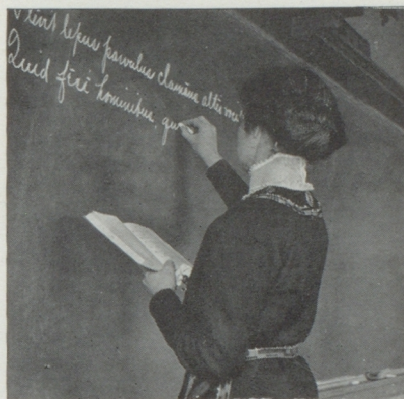 lepus parvulus clamans altis
Quid feci hominibus, quo